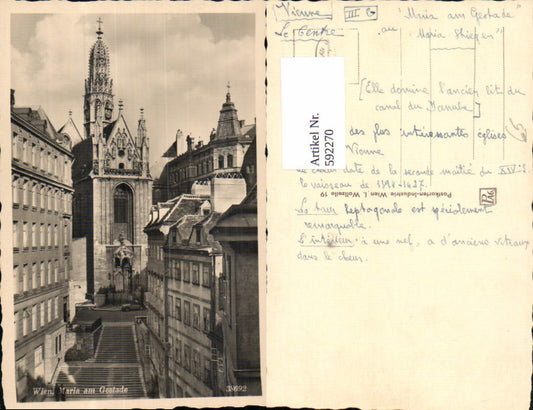 Wien, Maria am Gestade
38692
Vienne
III G
"Maria am Gestade"
Le Centre
ou "Maria Stiegen"
[Elle domine l'ancien lit du
canal du Danube]
des plus intéressantes églises
Vienne
date de la seconde moitié du XIV
le vaisseau de 1394-1427.
La tour heptagonale est spécialement
remarquable.
L'intérieur à une nef, a d'anciens vitraux
dans le chœur.
Postkarten-Industrie Wien I. Wollzeile 19
Artikel Nr.
592270